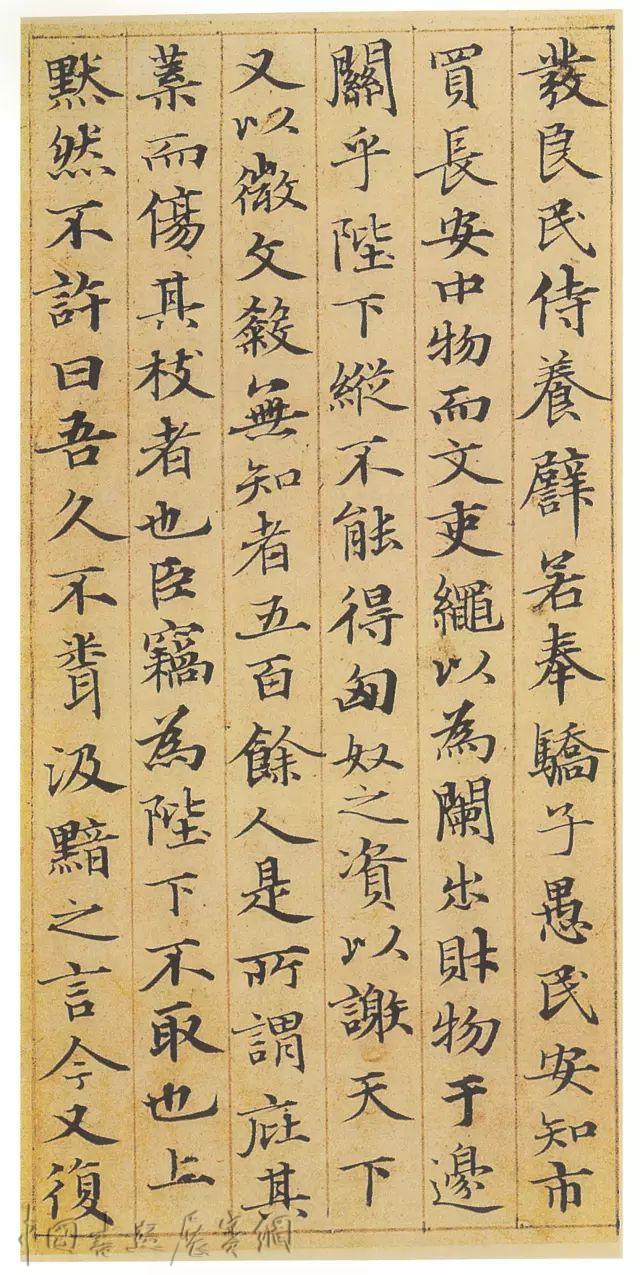 發良民侍養譬若奉驕子愚民安知市
買長安中物而文吏繩以為闌出財物于邊
關乎陛下縱不能得匈奴之資以謝天下
又以微文殺無知者五百餘人是所謂庇其
葉而傷其枝者也臣竊為陛下不取也上
默然不許曰吾久不聞汲黯之言今又復
中國書法展賽網